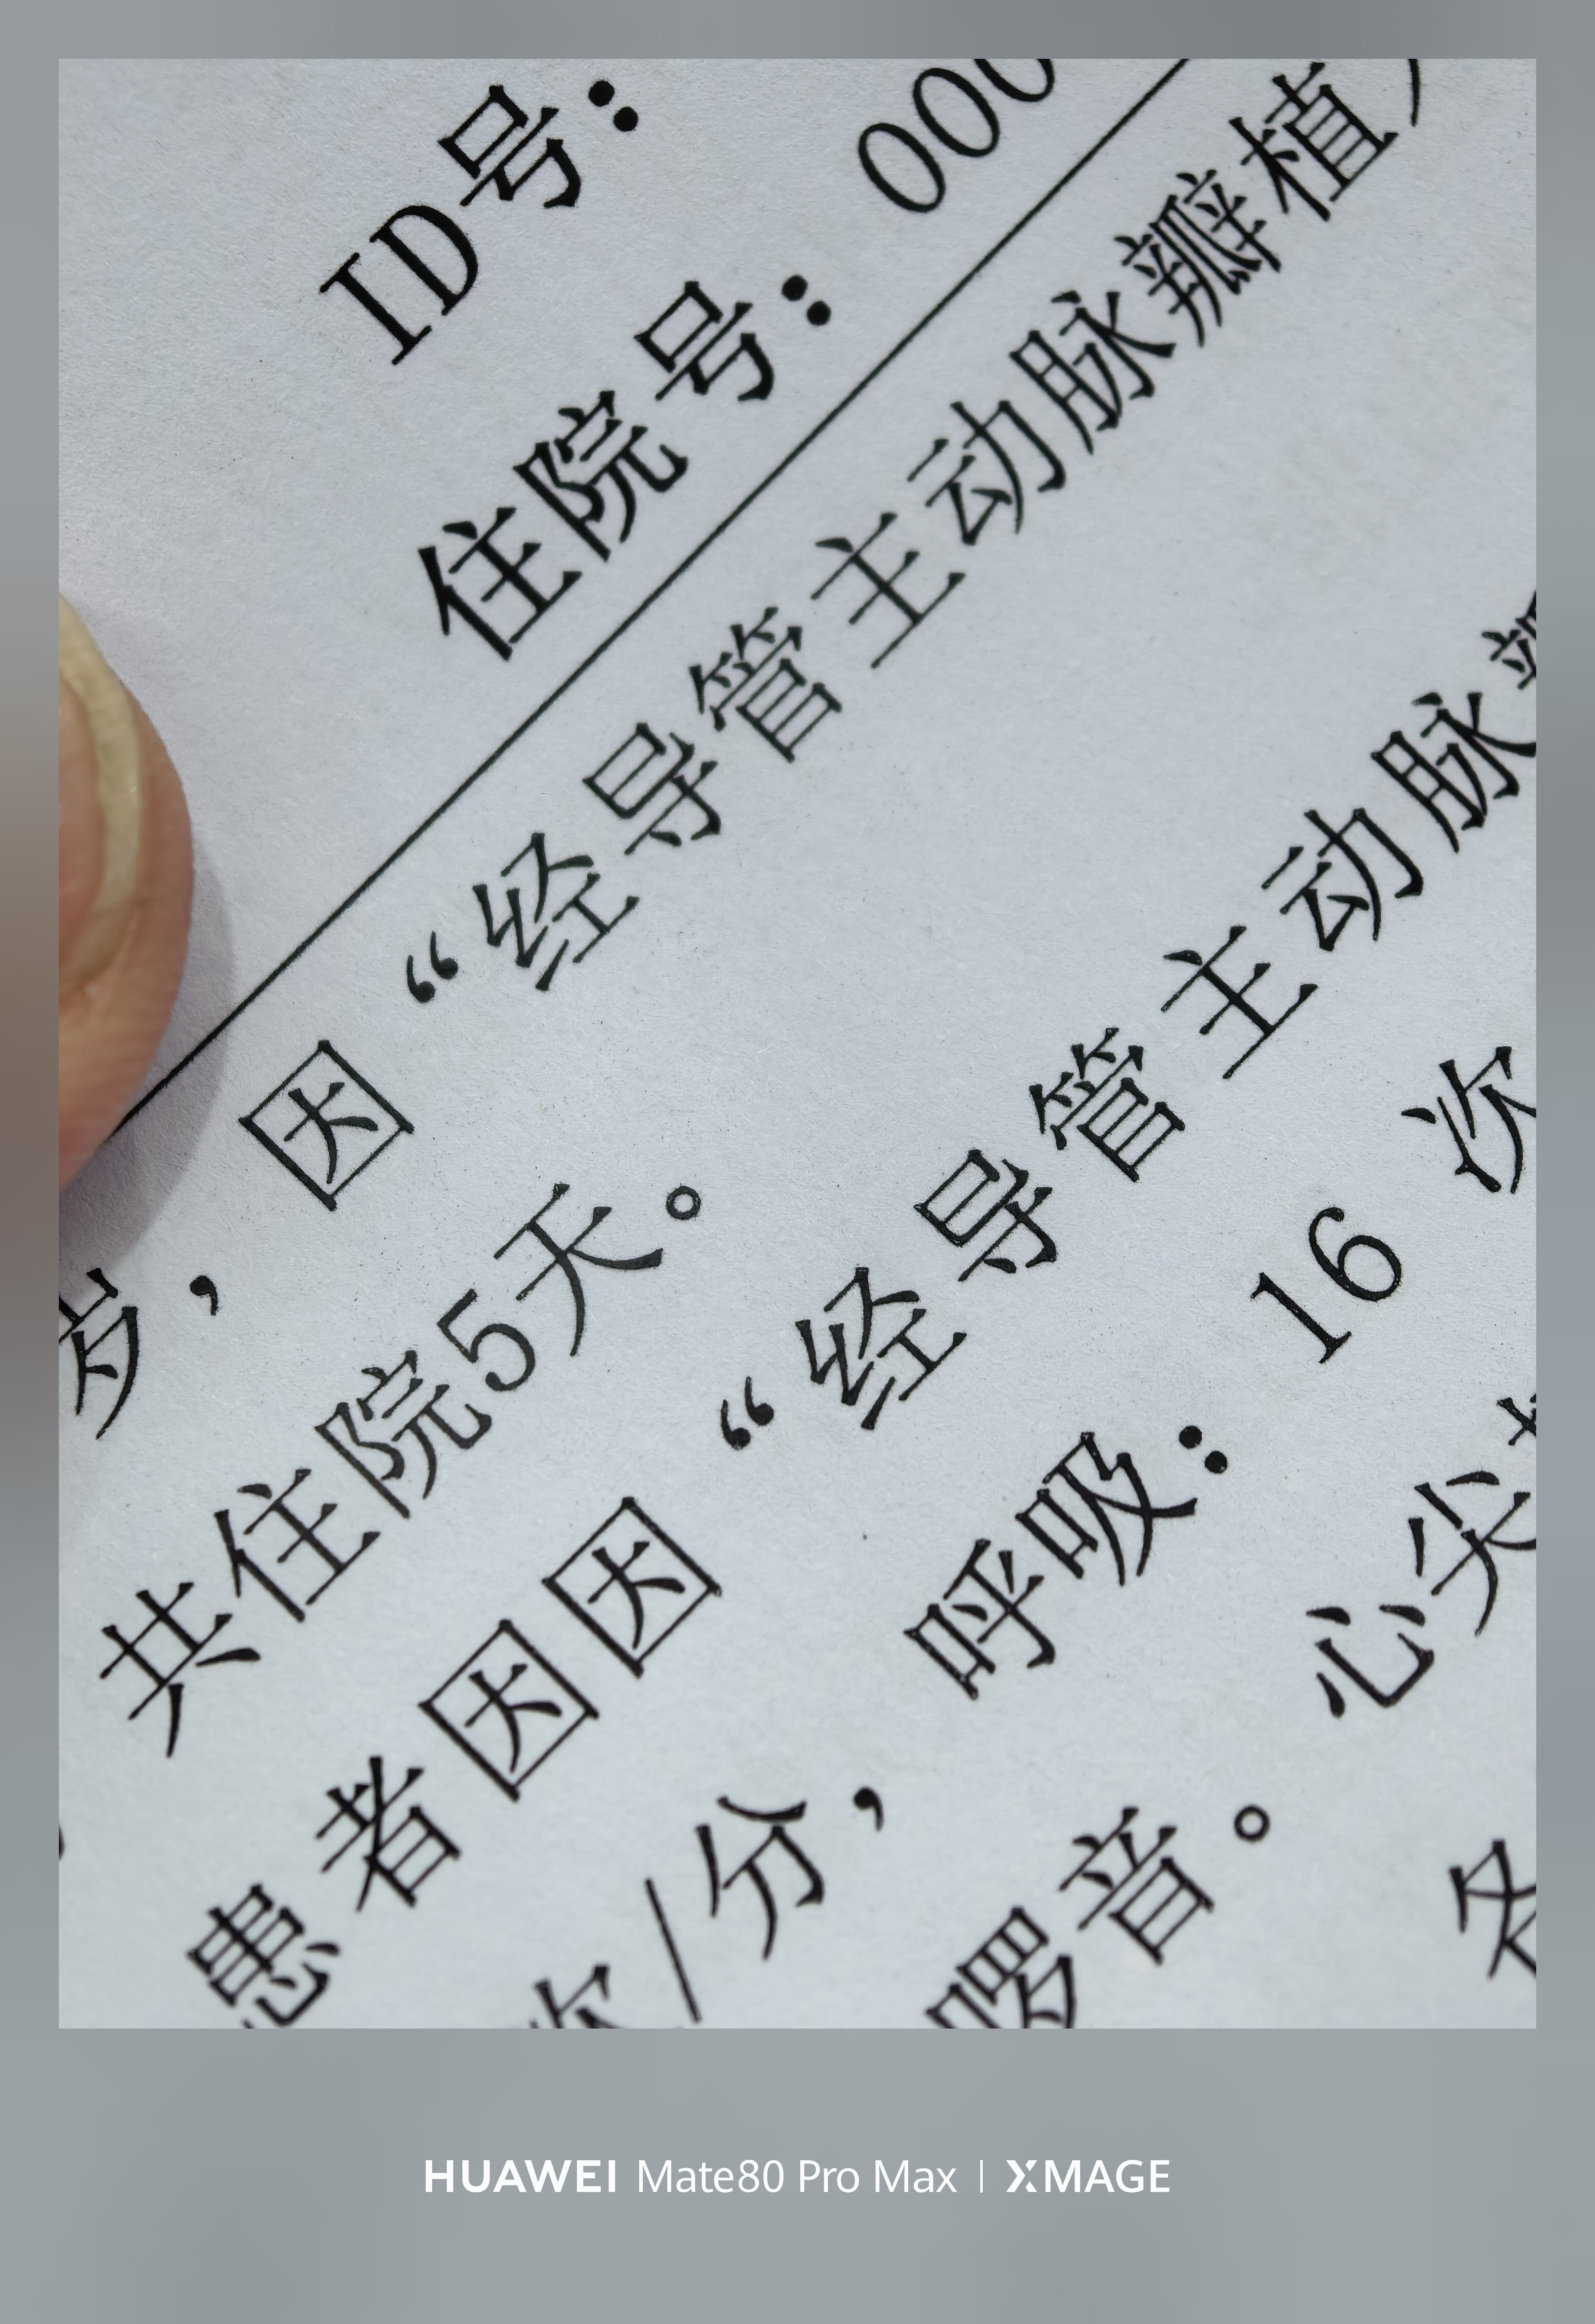 ID号:
住院号: 000
岁，因“经导管主动脉瓣植
共住院5天。
患者因因“经导管主动脉
次/分，呼吸: 16 次
啰音。心尖
各
HUAWEI Mate80 Pro Max | XMAGE